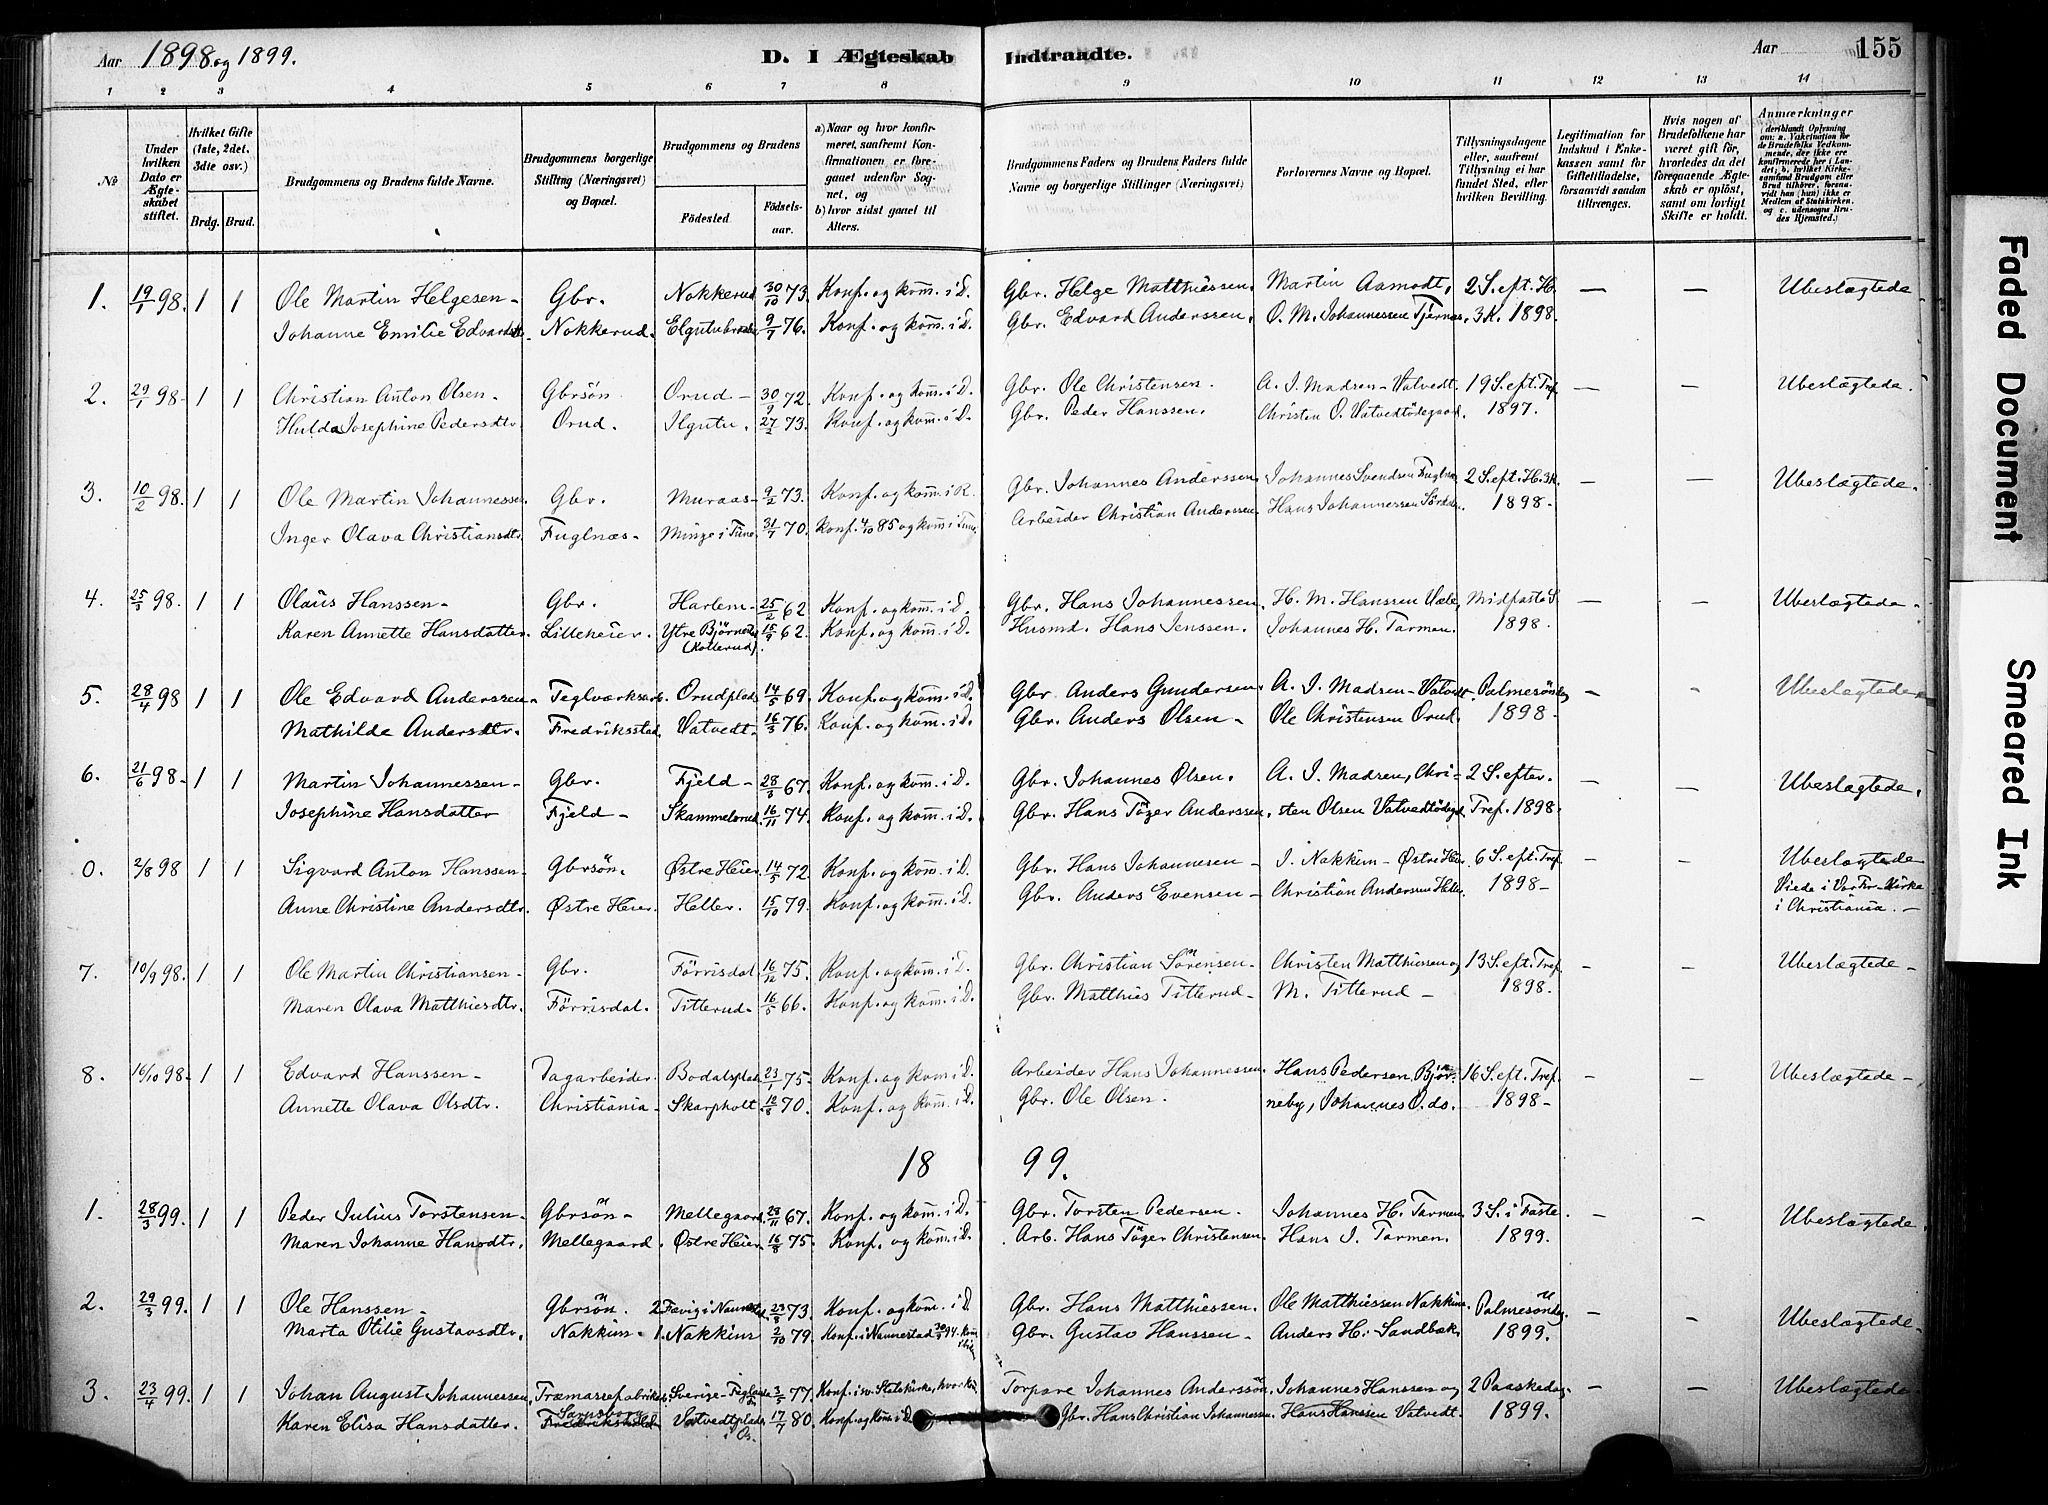 Aar 1898 og 1899.
D. I Ægteskab Indtraadte.
Aar 155
1 2 3 4 5 6 7 8 9 10 11 12 13 14
No
Under hvilken Dato er Ægteskabet stiftet.
Hvilket Gifte (1ste, 2det, 3die osv.)
Brdg. Brud.
Brudgommens og Brudens fulde Navne.
Brudgommens borgerlige Stilling (Næringsvei) og Bopæl.
Brudgommens og Brudens
Födested. Födselsaar.
a) Naar og hvor konfirmeret, saafremt Konfirmationen er foregaaet udenfor Sognet, og
b) hvor sidst gaaet til Alters.
Brudgommens Faders og Brudens Faders fulde Navne og borgerlige Stillinger (Næringsvei)
Forlovernes Navne og Bopæl.
Tillysningsdagene eller, saafremt Tillysning ei har fundet Sted, efter hvilken Bevilling.
Legitimation for Indskud i Enkekassen samt for Giftetilladelse, forsaavidt saadan tiltrænges.
Hvis nogen af Brudefolkene har været gift för, hvorledes da det foregaaende Ægteskab er oplöst, samt om lovligt Skifte er holdt.
Anmærkninger (deriblandt Oplysning om: a. Vakcination for de Brudefolks Vedkommende, der ikke ere konfirmerede her i Landet; b. hvilket Kirkesamfund Brudgom eller Brud tilhörer, forsaavidt han (hun) ikke er Medlem af Statskirken, og c. udensogns Brudes Hjemsted.)
1. 19/1 98. 1 1 Ole Martin Helgesen - Gbr. Nokkerud 30/10 73. Konf. og kom. i D. Gbr. Helge Matthiessen. Martin Aamodt, 2 S. eft. H. — — Ubeslægtede
Johanne Emilie Edvardsdtr. Nokkerud. 9/7 76. Konf. og kom. i D. Gbr. Edvard Anderssen. O. M. Johannessen Tjernæs. 3 K. 1898.
2. 29/1 98 - 1 1 Christian Anton Olsen - Gbrsön Orud - 30/9 72. Konf. og kom. i D. Gbr. Ole Christensen. A. J. Madsen - Vatvedt. 19 S. eft. Tref. — — Ubeslægtede.
Hulda Josephine Pedersdtr. Orud. Ilgutu. 27/2 73. Konf. og kom. i D. Gbr. Peder Hanssen. Christen O. Vatvedtödegaard. 1897.
3. 10/2 98. 1 1 Ole Martin Johannessen Gbr. Muraas - 9/2 73. Konf. og kom. i R. Gbr. Johannes Anderssen. Johannes Svendsen Fuglnæs 2 S. eft. H. 3 K. — — Ubeslægtede.
Inger Olava Christiansdtr. Fuglnæs - Minge i Tune 31/7 70. Konf. 4/10 85 og kom i Tune. Arbeider Christian Anderssen. Hans Johannessen 1898 -
4. 25/3 98. 1 1 Olaüs Hanssen - Gbr. Harlem - 25/2 62 Konf. og kom. i D. Gbr. Hans Johannessen. H. M. Hanssen Væle, Midfaste S. — — Ubeslægtede -
Karen Annette Hansdatter. Lilleheier. Ytre Björne 15/9 62. Konf. og kom. i D. Husmd. Hans Jenssen. Johannes H. Tarmen. 1898.
(Kollerud).
5. 28/4 98 1 1 Ole Edvard Anderssen - Teglværksarb. Orudplads 14/5 69. Konf. og kom. i D. Gbr. Anders Gundersen. A. J. Madsen - Vatvedt. Palmesönd. — — Ubeslægtede
Mathilde Andersdtr. Fredriksstad. Vatvedt. 16/3 76. Konf. og kom. i D. Gbr. Anders Olsen - Ole Christensen Orud. 1898 -
6. 21/6 98 - 1 1 Martin Johannessen - Gbr. Fjeld - 28/3 67. Konf. og kom. i D. Gbr. Johannes Olsen. A. J. Madsen, Chri- 2 S. efter. — — Ubeslægtede.
Josephine Hansdatter Fjeld - Skammelsrud. 16/11 74. Konf. og kom. i D. Gbr. Hans Töger Anderssen. sten Olsen Vatvedtödegd. Tref. 1898.
0. 2/8 98 1 1 Sigvard Anton Hanssen - Gbrsön. Östre Heier 14/5 72. Konf. og kom. i D. Gbr. Hans Johannesen - J. Nakkim - Östre Heier 6 S. eft. Tref. — — Ubeslægtede
Anne Christine Andersdtr. Östre Heier. Heller. 15/10 79. Konf. og kom. i D. Gbr. Anders Evensen - Christian Andersen Heller. 1898 - Viede i Vor Fr. Kirke
i Christiania. -
7. 10/9 98. 1 1 Ole Martin Christiansen - Gbr. Förrisdal. 16/12 75. Konf. og kom. i D. Gbr. Christian Sörensen - Christen Matthiessen og 13 S. eft. Tref. — — Ubeslægtede -
Maren Olava Matthiesdtr. Förrisdal. Titterud - 16/5 66. Konf. og kom. i D. Gbr. Matthies Titterud - M. Titterud - 1898.
8. 16/10 98 - 1 1 Edvard Hanssen - Dagarbeider. Bodalsplads 23/1 75. Konf. og kom i D. Arbeider Hans Johannessen. Hans Pedersen Björ- 16 S. eft. Tref. — — Ubeslægtede -
Annette Olava Olsdtr. Christiania - Skarpholt. 12/8 70. Konf. og kom. i D. Gbr. Ole Olsen. neby, Johannes O. do. 1898 -
1899.
1. 28/3 99. 1 1 Peder Julius Torstensen - Gbrsön - Mellegaard. 23/11 67. Konf. og kom. i D. Gbr. Torsten Pedersen. Johannes H. Tarmen 3 S. i Faste. — — Ubeslægtede.
Maren Johanne Hansdtr. Mellegaard. Östre Heier. 16/8 75. Konf. og kom. i D. Arb. Hans Töger Christensen. Hans J. Tarmen. 1899.
2. 29/3 99. 1 1 Ole Hanssen - Gbrsön. 2 i Nannestad. 23/8 73. Konf. og kom. i D. Gbr. Hans Matthiessen. Ole Matthiessen Nakkim. Palmesönd. — — Ubeslægtede -
Marta Otilie Gustavsdtr. Nakkim - 1. Nakkim 2/10 79. Konf. i Nannestad 30/9 94. kom Gbr. Gustav Hanssen - Anders H. Sandbæk. 1899.
3. 23/4 99. 1 1 Johan August Johannessen, Træmassefabrikarb. Sverige - 3/5 77. Konf. i sv. Statskirke, hvor kom. Torpare Johannes Anderssön. Johannes Hanssen og 2 Paaskedag — — Ubeslægtede
Karen Elisa Hansdatter. Sarpsborg Fredrikshald Vatvedtplads i Ös. 17/7 80. Konf. og kom. i D. Gbr. Hans Christian Johannessen. Hans Hanssen Vatvedt. 1899.
Faded Document
Smeared Ink